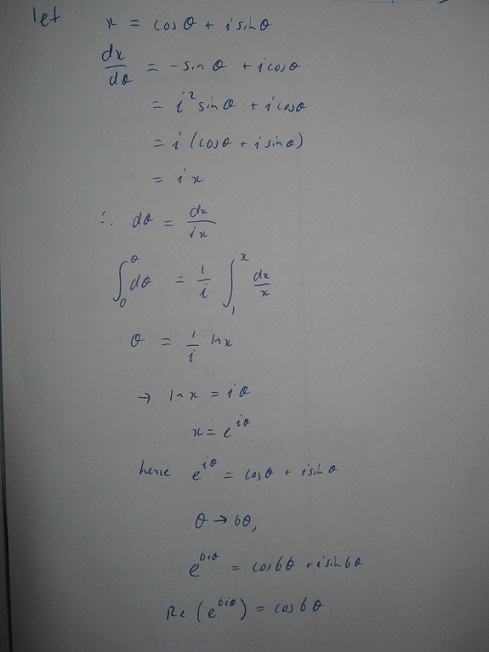 let x = cosθ + i sinθ
dx/dθ = -sinθ + i cosθ
= i² sinθ + i cosθ
= i (cosθ + i sinθ)
= i x
∴ dθ = dx/ix
∫₀^θ dθ = 1/i ∫₁^x dx/x
θ = 1/i ln x
→ ln x = iθ
x = e^{iθ}
hence e^{iθ} = cosθ + i sinθ
θ → 6θ,
e^{6iθ} = cos6θ + i sin6θ
Re (e^{6iθ}) = cos6θ.